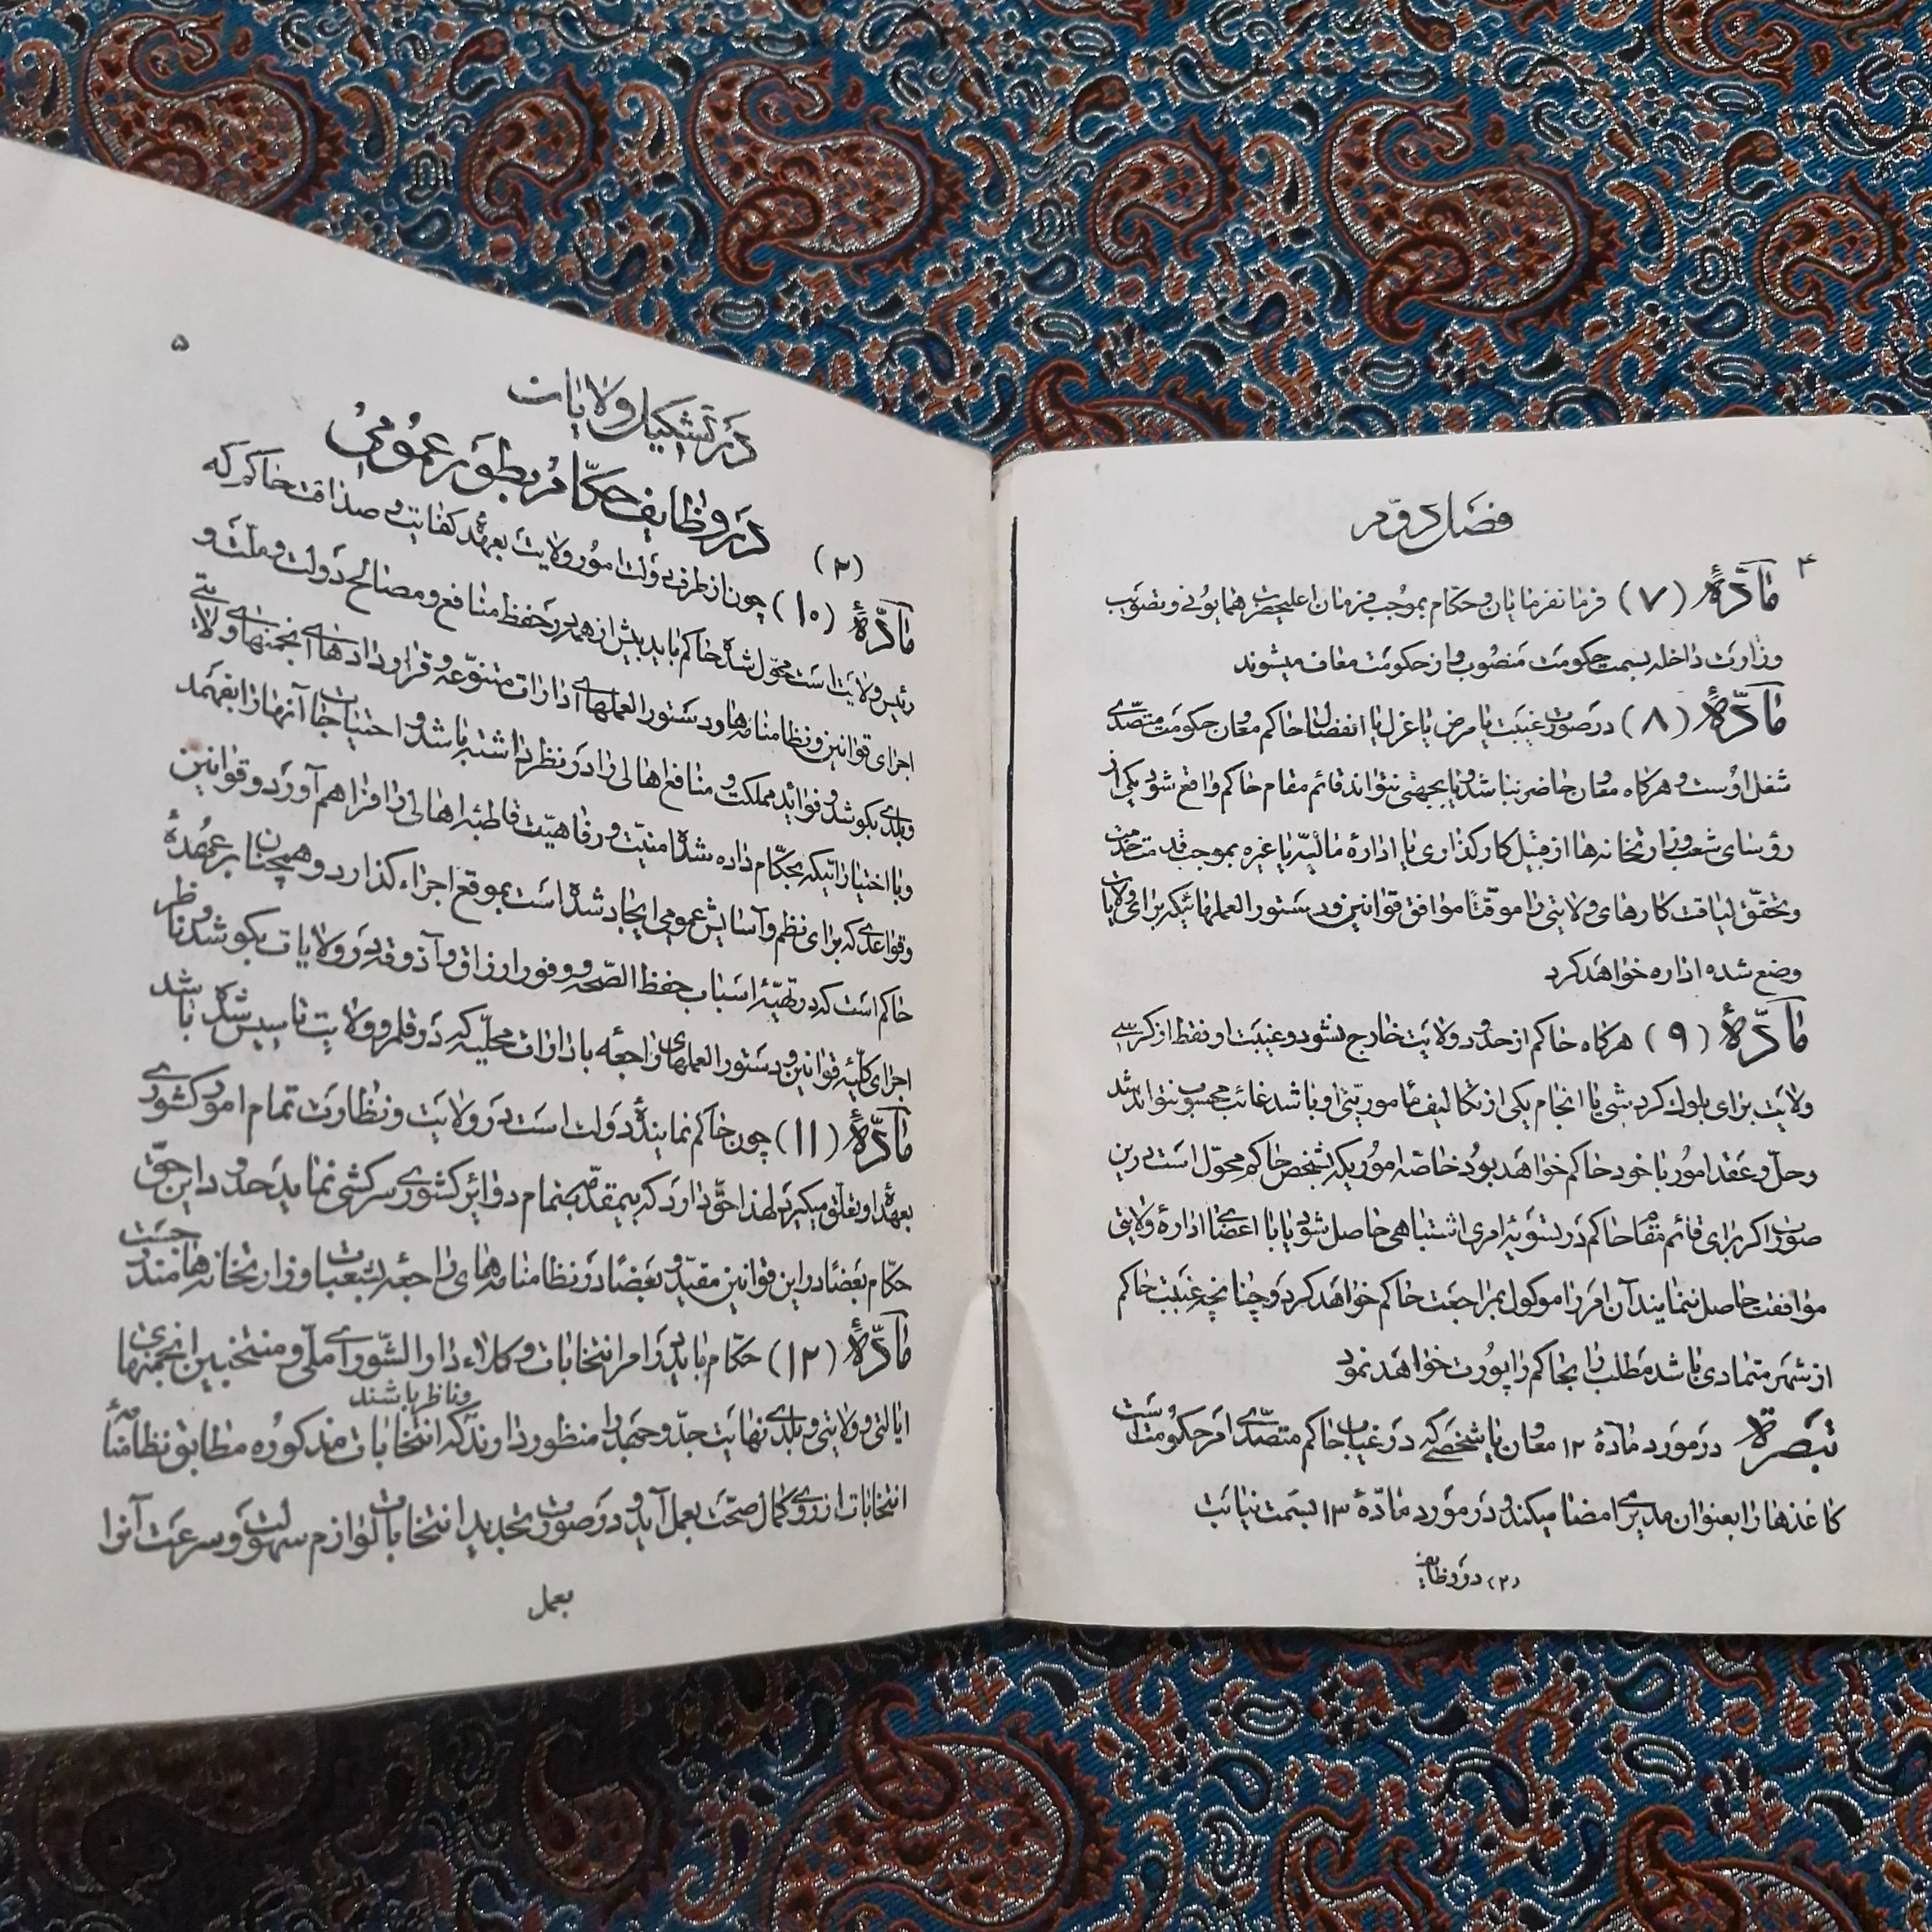 فصل دوّم
۴
مادّهٔ (۷) فرمانفرمایان و حکام بموجب فرمان اعلیحضرت همایونی و تصویب
وزارت داخله بسمت حکومت منصوب و از حکومت معاف میشوند
مادّهٔ (۸) در صورت غیبت یا مرض یا عزل یا انفصال حاکم معاون حکومت متصدّی
شغل اوست و هرکاه معاون حاضر نباشد و یا بجهتی نتواند قائم مقام حاکم واقع شود یکی از
رؤسای شعب وزارتخانه‌ها از قبیل کارکذاری یا ادارهٔ مالیّه یا غیره بموجب قدمت خدمت
و تحقّق لیاقت کارهای ولایتی را موقّتاً موافق قوانین و دستورالعملهائیکه برای ولایات
وضع شده اداره خواهد کرد
مادّهٔ (۹) هرکاه حاکم از حدود ولایت خارج نشود و غیبت او فقط از کرسی
ولایت برای بلوک کردشی یا انجام یکی از تکالیف مأموریّتی او باشد غائب محسوب نتواند شد
و حلّ و عقد امور با خود حاکم خواهد بود خاصّه اموریکه بشخص حاکم محوّل است در این
صورت اکر برای قائم مقام حاکم در تسویهٔ امری اشتباهی حاصل شود یا با اعضای ادارهٔ ولایتی
موافقت حاصل ننمایند آن امر را موکول بمراجعت حاکم خواهد کرد و چنانچه غیبت حاکم
از شهر متمادی باشد مطلب را بحاکم راپورت خواهد نمود
تبصرة در مورد مادّهٔ ۱۲ معاون یا شخصی که در غیاب حاکم متصدّی امر حکومت است
کاغذها را بعنوان مدیر امضا میکند و در مورد مادّهٔ ۱۳ بسمت نیابت
(۲) در وظایف
۵
در تشکیل ولایات
(۲) در وظایف حکّام بطور عمومی
مادّهٔ (۱۰) چون از طرف دولت امور ولایت بعهدهٔ کفایت و صداقت حاکم که
رئیس ولایت است محوّل شده حاکم باید بیش از همه در حفظ منافع و مصالح دولت و ملّت و
اجرای قوانین و نظامنامه‌ها و دستورالعملهای ادارات متنوّعه و قراردادهای انجمنهای ولایتی
و بلدی بکوشد و فواید مملکت و منافع اهالی را در نظر داشته باشد و احتیاجات آنها را بفهمد
و با اختیاراتیکه بحکّام داده شده امنیّت و رفاهیّت قاطبهٔ اهالی را فراهم آورد و قوانین
و قواعدی که برای نظم و آسایش عمومی ایجاد شده است بموقع اجراء کذارد و همچنان بر عهدهٔ
حاکم است که در تهیّهٔ اسباب حفظ الصّحه و وفور ارزاق و آذوقه در ولایات بکوشد و ناظر
اجرای کلّیهٔ قوانین و دستورالعملهای راجعه بادارات محلّیه که در قلمرو ولایت تأسیس شده باشد
مادّهٔ (۱۱) چون حاکم نمایندهٔ دولت است در ولایت و نظارت تمام امور کشوری
بعهدهٔ او تعلّق میکیرد لهذا حقّ دارد که بی‌مقدّمه بتمام دوائر کشوری سرکشی نماید حدود این حقّ
حکّام بعضاً در این قوانین مقیّد و بعضاً در نظامنامه‌های راجعه بشعبات وزارتخانه‌ها مندرجست
مادّهٔ (۱۲) حکّام باید در امر انتخابات وکلاء دارالشّورای ملّی و منتخبین انجمنهای
و ناظر باشند
ایالتی و ولایتی و بلدی نهایت جدّ و جهد را منظور دارند که انتخابات مذکوره مطابق نظامنامهٔ
انتخابات از روی کمال صحّت بعمل آید و در صورت تجدید انتخابات لوازم سهولت و سرعت آنرا
بعمل